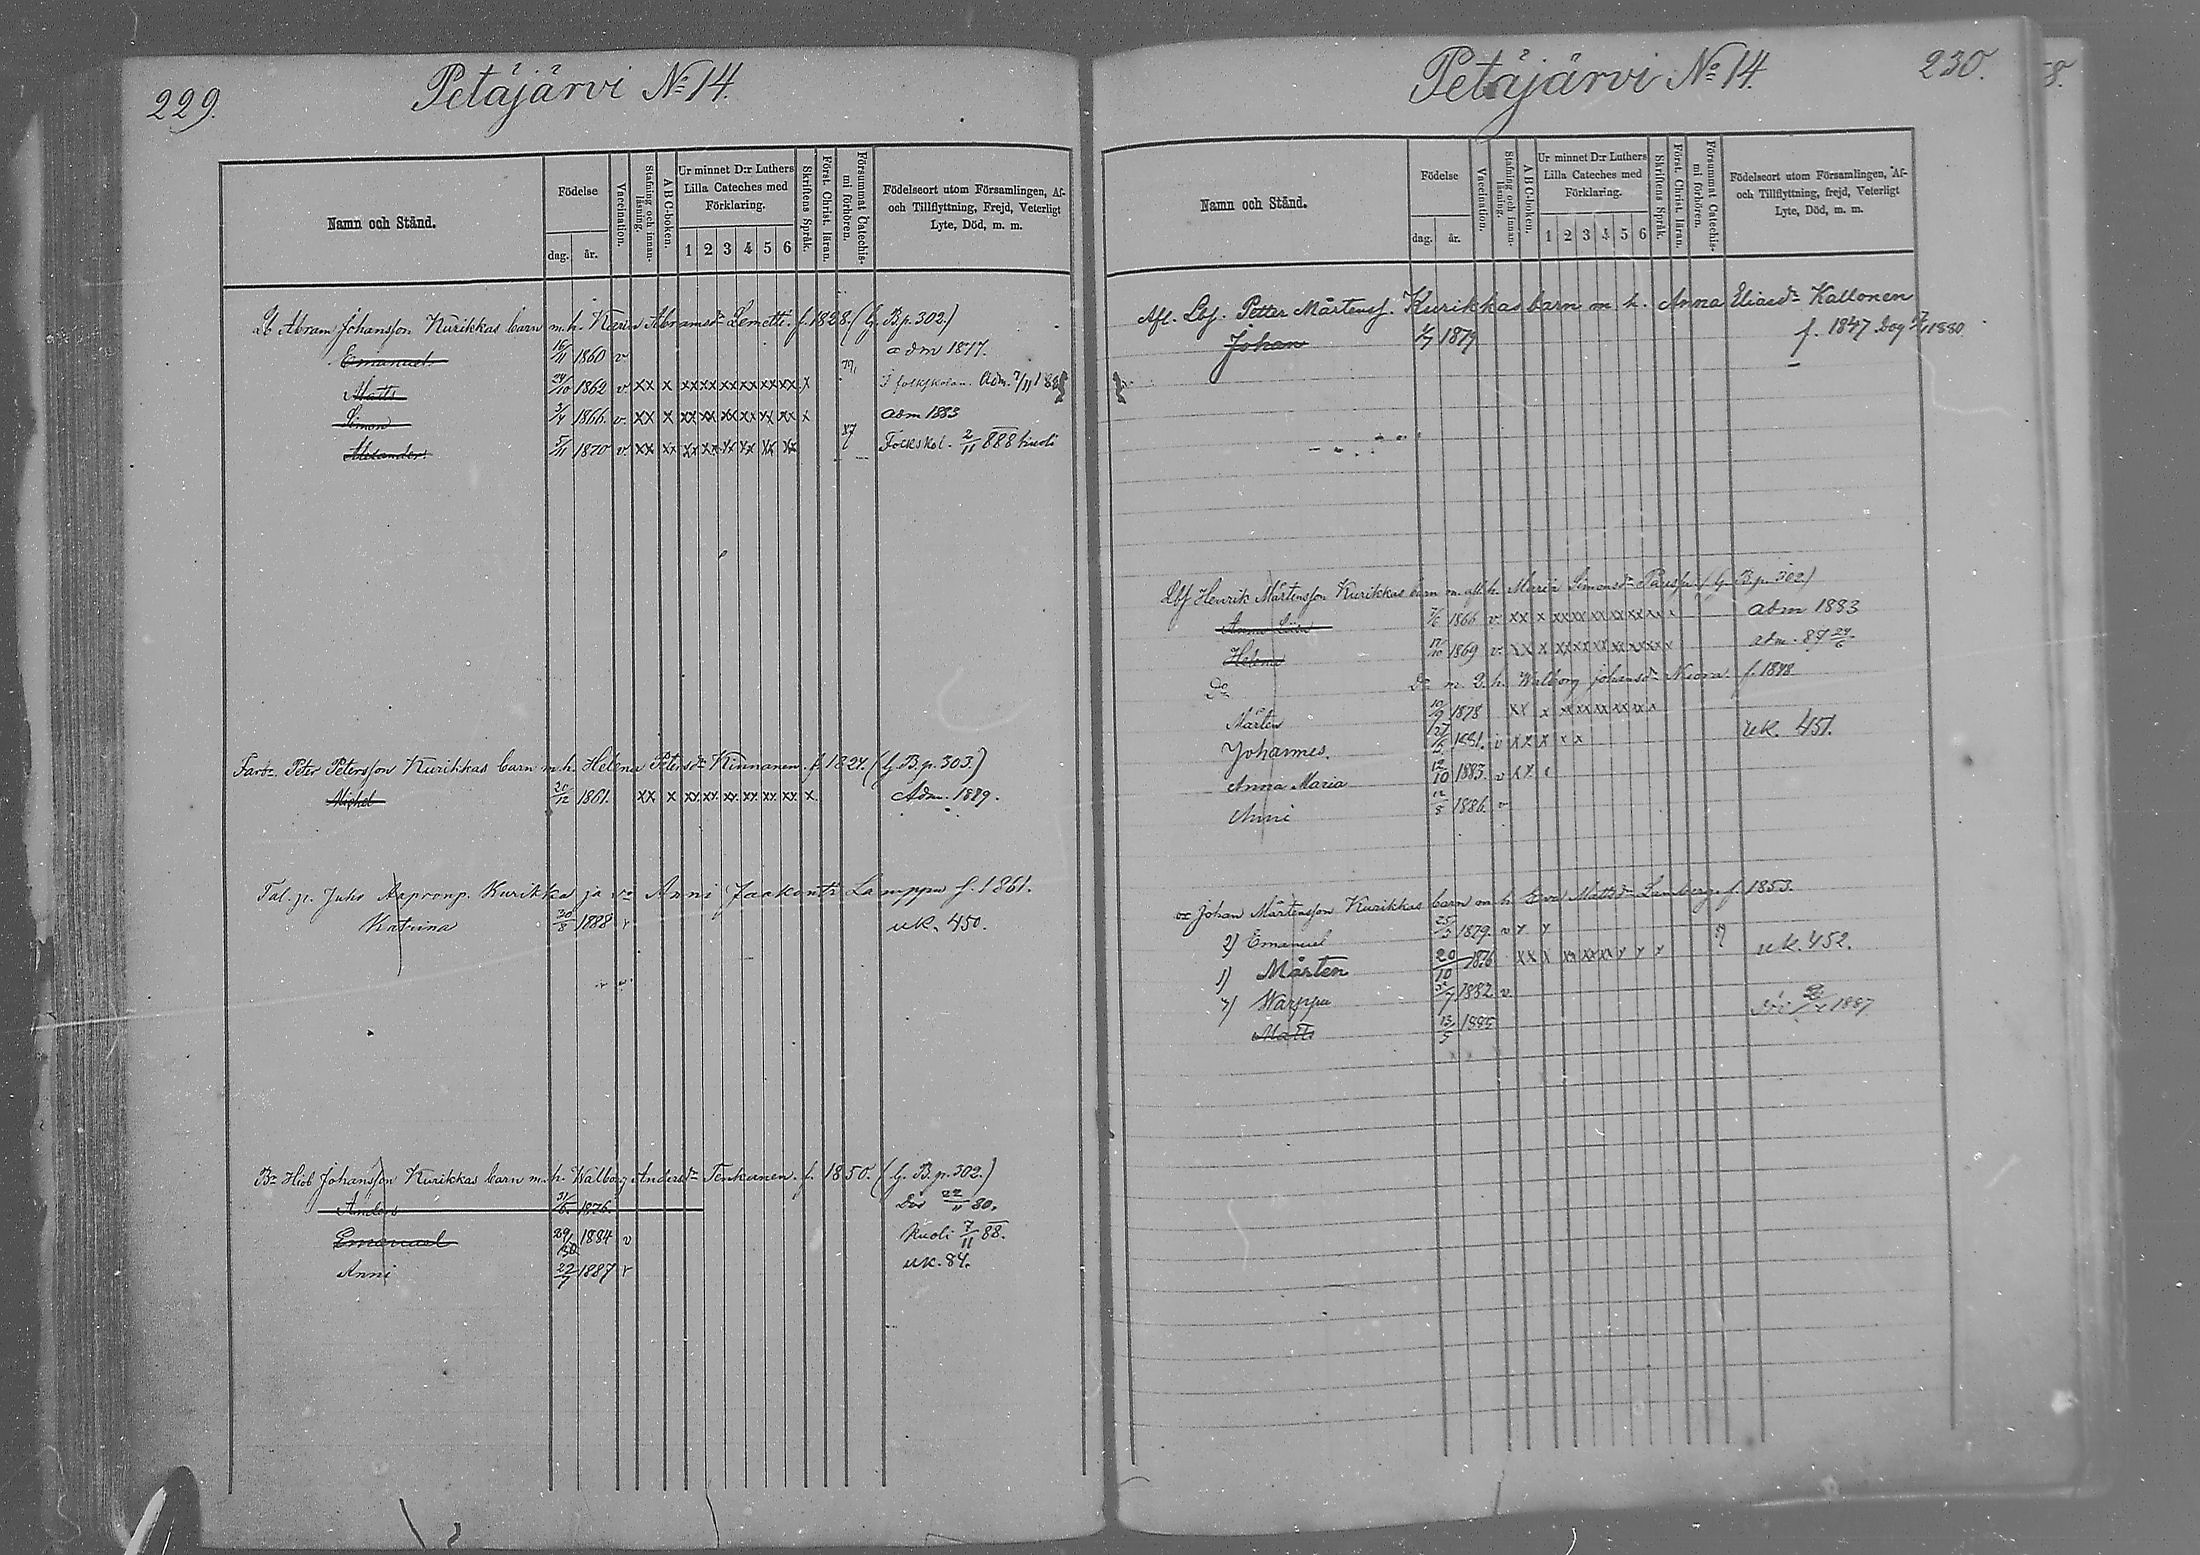 229.
Petäjärvi No 14.
Namn och Stånd.
Födelse
dag. år.
Vaccination.
Stafning och innan-läsning.
A B C-boken.
Ur minnet D:r Luthers Lilla Cateches med Förklaring.
1 2 3 4 5 6
Skriftens Språk.
Först. Christ. läran.
Försummat Catechis-mi förhören.
Födelseort utom Församlingen, Af- och Tillflyttning, Frejd, Veterligt Lyte, Död, m. m.
Lb Abram Johansson Kurikkas barn m. h. Karin Abramsdr Lemetti f. 1828. (G. B. p. 302.)
Emanuel 16/11 1860 v adm 1877.
Matts 24/10 1862 v. xx x xx xx xx xx xx xx x I folkskolan. Adm. 7/11
Simon 3/4 1866 v. xx x xx xx xx xx xx xx x adm 1883
Alexander 5/11 1870 v. xx xx xx xx xx xx xx xx Folkskol. 2/11 888 kuoli
Peter Petersson Kurikkas barn m. h. Helena Petersdr Kinnanen f. 1824. (G. B. p. 303.)
Michel 20/12 1861. xx x xx xx xx xx xx xx x Adm. 1879.
Tal. p. Juho Aapronp. Kurikka ja vo Anni Jaakontr Lamppu f. 1861.
Katrina 30/8 1888 r uk. 450.
Br Hiob Johansson Kurikkas barn m. h. Walborg Andersdr Tenkanen. f. 1850. (G. B. p. 302.)
Anders 31/6 1876. Död 22/11 80.
Emanuel 1884 v kuoli 7/11 88.
Anni 22/7 1887 r uk. 84.
230.
Petäjärvi No 14.
Namn och Stånd.
Födelse
dag. år.
Vaccination.
Stafning och innan-läsning.
A B C-boken.
Ur minnet D:r Luthers Lilla Cateches med Förklaring.
1 2 3 4 5 6
Skriftens Språk.
Först. Christ. läran.
Försummat Catechis-mi förhören.
Födelseort utom Församlingen, Af- och Tillflyttning, frejd, Veterligt Lyte, Död, m. m.
Afl. Lbf. Petter Mårtenss. Kurikkas barn m. h. Anna Eliasdr Kallonen
Johan 1/7 1879 f. 1847 1880
Lbf Henrik Mårtensson Kurikkas barn m. afl. h. Maria Simonsdr (G. B. p. 302)
Anna 7/6 1866 v. xx x xx xx xx xx xx xx x adm 1883
Helena 17/10 1869 v. xx x xx xx xx xx xx xx x adm. 87 24/6
Do Do m. 2. h. Walborg Johansdr f. 1848
Mårten 10/9 1878 xx x xx xx xx xx x
Johannes. 1881. v xx x x x uk. 451.
Anna Maria 12/10 1883. v x x
Anni 12/8 1886. v
Johan Mårtensson Kurikkas barn m. h. Eva Mattsdr f. 1853.
2) Emanuel 25/3 1879. v x x
1) Mårten 20/10 1876 xx x xx xx xx x x x uk. 452.
Warppu 1882 v.
Matts 13/5 1885 1887